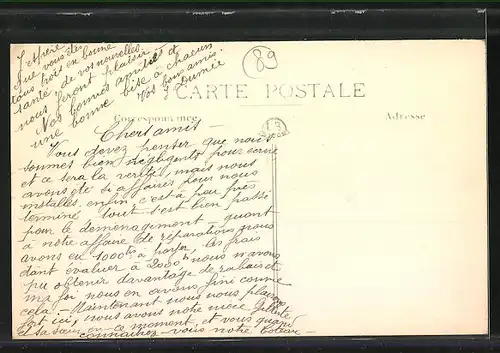 J'espère
que vous êtes
tous trois en bonne
santé de vos nouvelles
nous feront plaisir
Nos bonnes amitiés et
une bonne bise à chacun
Vos bons amis
89
CARTE POSTALE
Correspondance
Adresse
Chers amis -
Vous devez penser que nous
sommes bien négligents pour écrire
et ce sera la vérité, mais nous
avons été si affairés pour nous
installer. enfin c'est à peu près
terminé tout s'est bien passé
pour le déménagement - quant
à notre affaire de réparations nous
avons eu 1000 frs à payer, les frais
dont évaluer à 2000 nous n'avons
pu obtenir davantage de rabais et
ma foi nous en avons fini comme
cela. - Maintenant nous nous plaisons
fort ici, nous avons notre nièce
sa sœur en ce moment, et vous quand
connaîtrez-vous notre